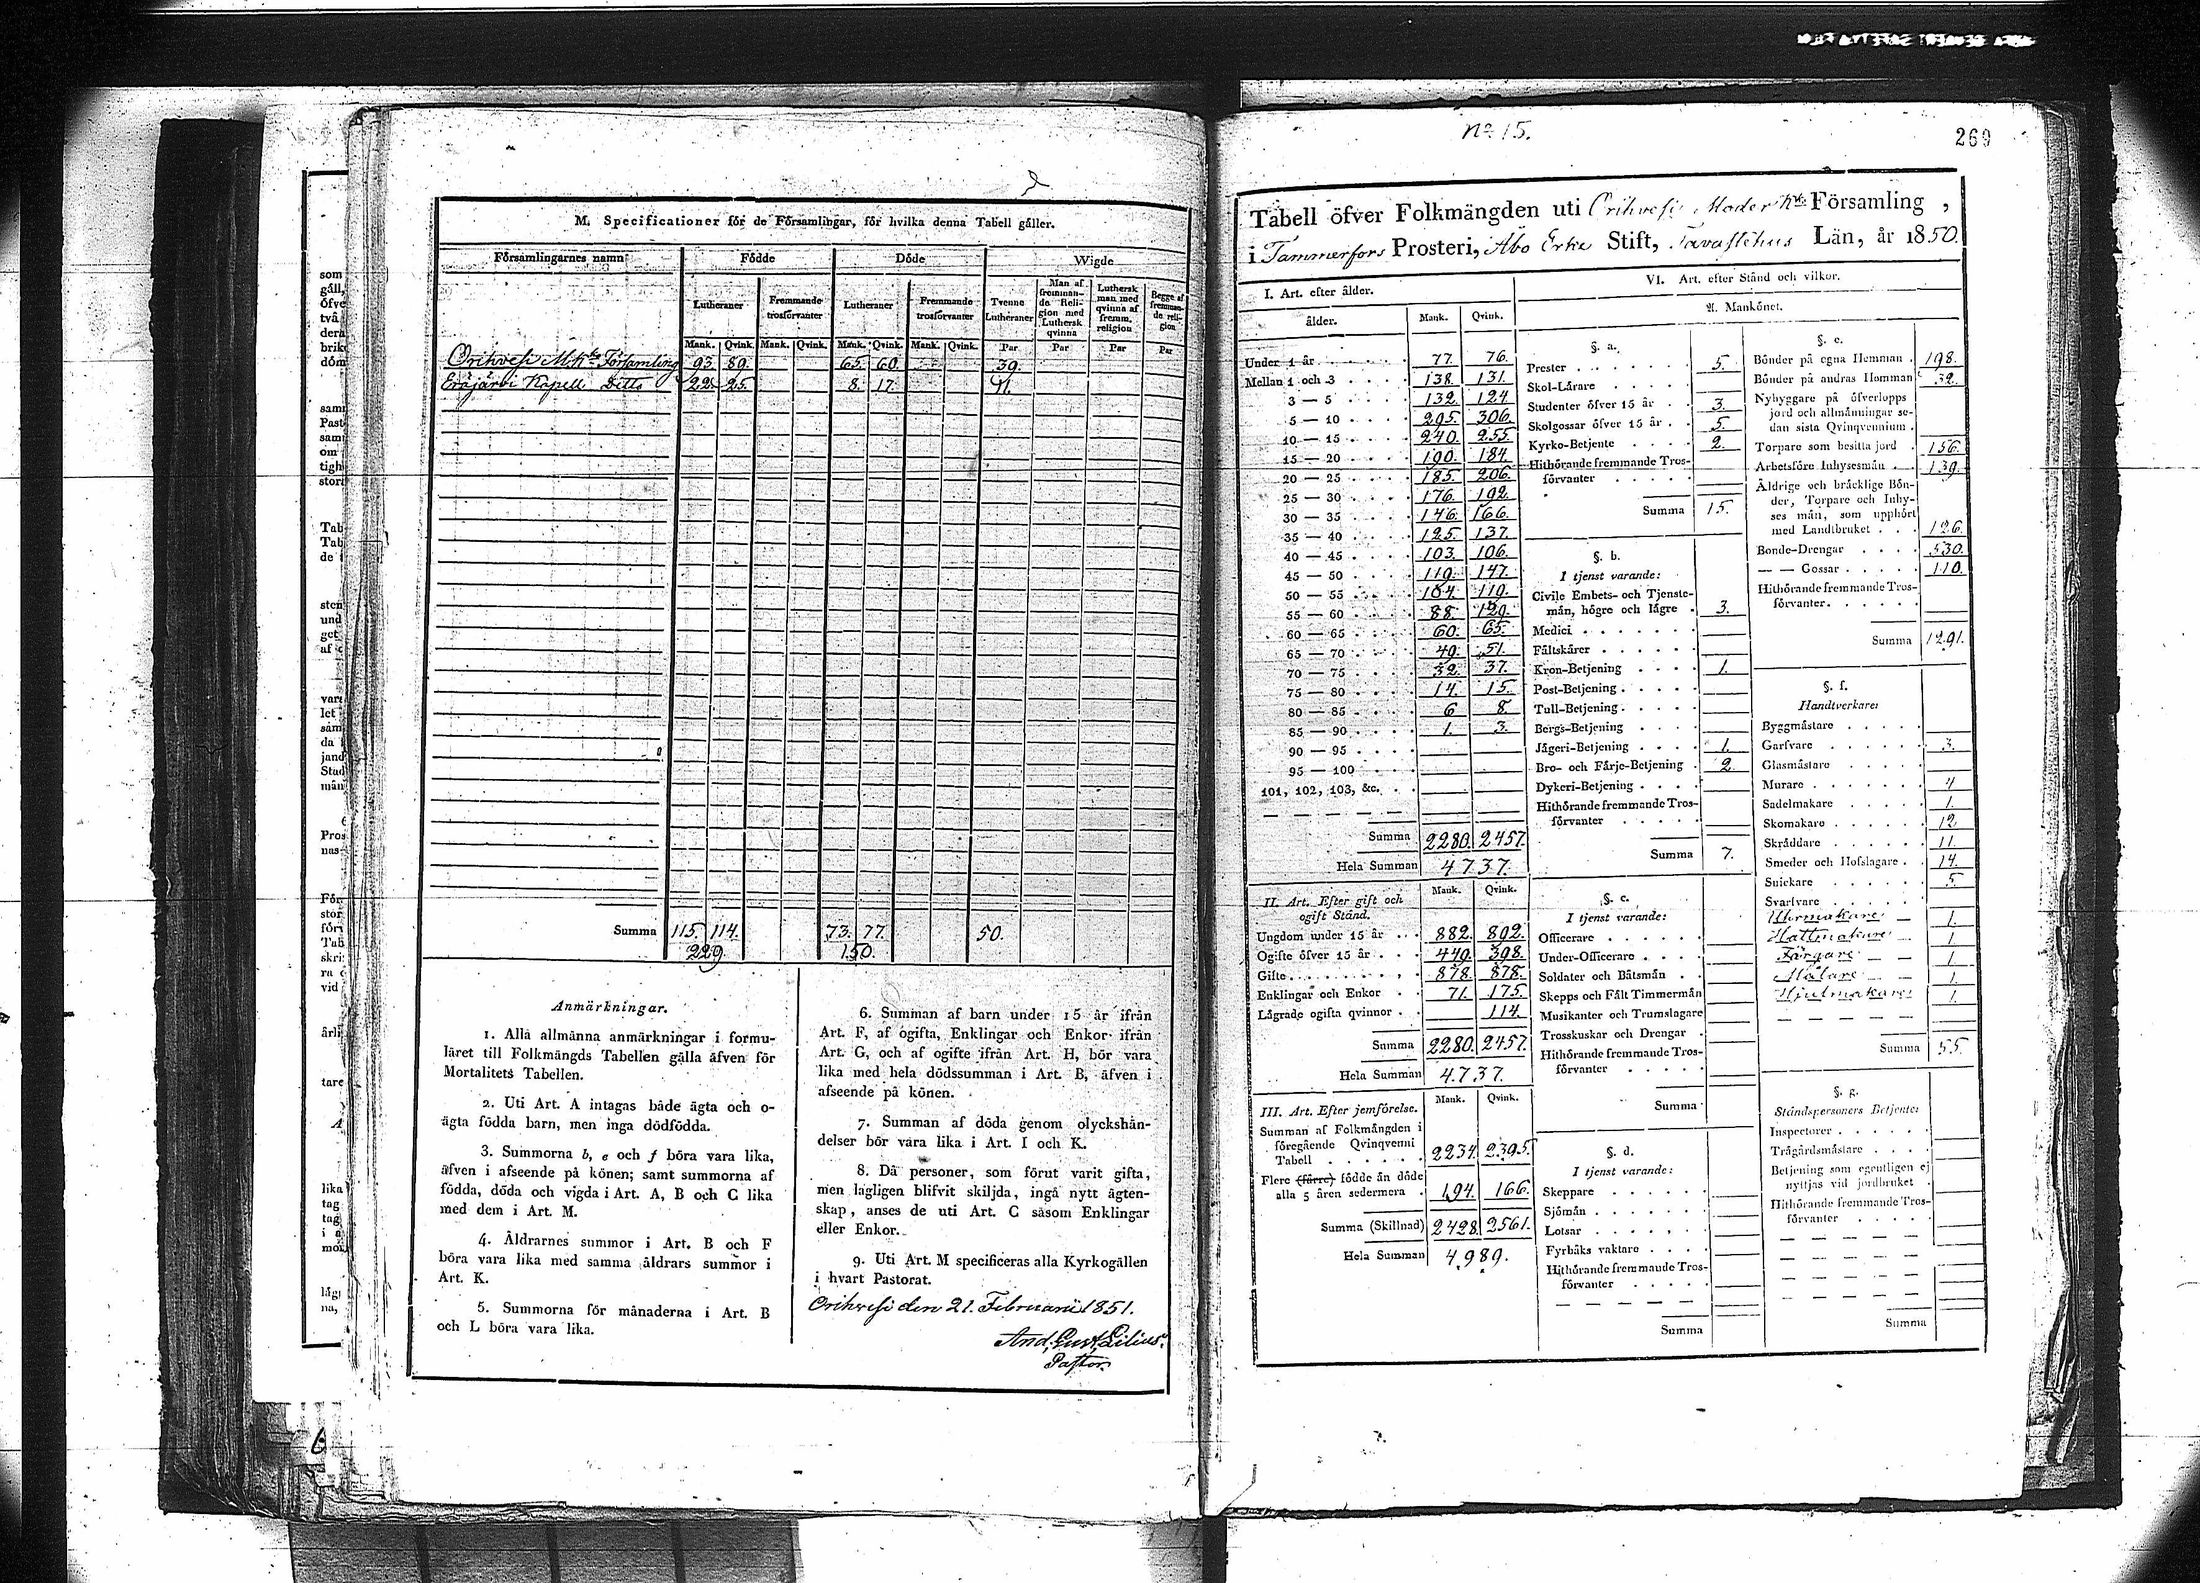 M. Specificationer för de Församlingar, för hvilka denna Tabell gäller.
Församlingarnes namn
Födde
Döde
Wigde
Lutheraner
Fremmande trosförvanter
Lutheraner
Fremmande trosförvanter
Tvenne Lutheraner
Man af fremmande Religion med Luthersk qvinna
Luthersk man med qvinna af fremm. religion
Begge af fremmande religion
Mank. Qvink. Mank. Qvink. Mank. Qvink. Mank. Qvink. Par Par Par Par
Orihvesi M.K. Församling 93. 89. 65. 60. 39.
Eräjärvi Kapell Ditto 22. 25. 8. 17. 11.
Summa 115. 114. 73. 77. 50.
229. 150.
Anmärkningar.
1. Alla allmänna anmärkningar i formu-
läret till Folkmängds Tabellen gälla äfven för
Mortalitets Tabellen.
2. Uti Art. A intagas både ägta och o-
ägta födda barn, men inga dödfödda.
3. Summorna b, e och f böra vara lika,
äfven i afseende på könen; samt summorna af
födda, döda och vigda i Art. A, B och C lika
med dem i Art. M.
4. Äldrarnes summor i Art. B och F
böra vara lika med samma äldrars summor i
Art. K.
5. Summorna för månaderna i Art. B
och L böra vara lika.
6. Summan af barn under 15 år ifrån
Art. F, af ogifta, Enklingar och Enkor ifrån
Art. G, och af ogifte ifrån Art. H, bör vara
lika med hela dödssumman i Art. B, äfven i
afseende på könen.
7. Summan af döda genom olyckshän-
delser bör vara lika i Art. I och K.
8. Då personer, som förut varit gifta,
men lagligen blifvit skiljda, ingå nytt ägten-
skap, anses de uti Art. C såsom Enklingar
eller Enkor.
9. Uti Art. M specificeras alla Kyrkogällen
i hvart Pastorat.
Orihvesi den 21. Februarii 1851.
And. Gust. Lilius.
Pastor.
No 15.
269
Tabell öfver Folkmängden uti Orihvesi Moder K. Församling,
i Tammerfors Prosteri, Åbo Erke Stift, Tavastehus Län, år 1850.
I. Art. efter ålder.
ålder. Mank. Qvink.
Under 1 år 77. 76.
Mellan 1 och 3 138. 131.
3 — 5 132. 124
5 — 10 295. 306.
10 — 15 240. 255.
15 — 20 190. 184.
20 — 25 185. 206.
25 — 30 176. 192.
30 — 35 146. 166.
35 — 40 125. 137.
40 — 45 103. 106.
45 — 50 119. 147.
50 — 55 104. 119.
55 — 60 88. 129.
60 — 65 60. 65.
65 — 70 49. 51.
70 — 75 32. 37.
75 — 80 14. 15.
80 — 85 6 8.
85 — 90 1. 3.
90 — 95
95 — 100
101, 102, 103, &c.
Summa 2280. 2457.
Hela Summan 4737.
II. Art. Efter gift och ogift Stånd. Mank. Qvink.
Ungdom under 15 år 882. 892.
Ogifte öfver 15 år 449. 398.
Gifte 878. 878.
Enklingar och Enkor 71. 175.
Lägrade ogifta qvinnor 114.
Summa 2280. 2457.
Hela Summan 4737.
III. Art. Efter jemförelse. Mank. Qvink.
Summan af Folkmängden i
föregående Qvinqvenni
Tabell 2234. 2395.
Flere (färre) födde än döde
alla 5 åren sedermera 194. 166.
Summa (Skillnad) 2428. 2561.
Hela Summan 4989.
VI. Art. efter Stånd och vilkor.
A. Mankönet.
§. a.
Prester 5.
Skol-Lärare
Studenter öfver 15 år 3.
Skolgossar öfver 15 år 5.
Kyrko-Betjente 2.
Hithörande fremmande Tros-
förvanter
Summa 15.
§. b.
I tjenst varande:
Civile Embets- och Tjenste-
män, högre och lägre 3.
Medici
Fältskärer
Kron-Betjening 1.
Post-Betjening
Tull-Betjening
Bergs-Betjening
Jägeri-Betjening 1.
Bro- och Färje-Betjening 2.
Dykeri-Betjening
Hithörande fremmande Tros-
förvanter
Summa 7.
§. c.
I tjenst varande:
Officerare
Under-Officerare
Soldater och Båtsmän
Skepps och Fält Timmermän
Musikanter och Trumslagare
Trosskuskar och Drengar
Hithörande fremmande Tros-
förvanter
Summa
§. d.
I tjenst varande:
Skeppare
Sjömän
Lotsar
Fyrbåks vaktare
Hithörande fremmande Tros-
förvanter
Summa
§. e.
Bönder på egna Hemman 198.
Bönder på andras Hemman 32.
Nybyggare på öfverlopps
jord och allmänningar se-
dan sista Qvinqvennium
Torpare som besitta jord 156.
Arbetsföre Inhysesmän 139.
Åldrige och bräcklige Bön-
der, Torpare och Inhy-
ses män, som upphört
med Landtbruket 126.
Bonde-Drengar 530.
— — Gossar 110.
Hithörande fremmande Tros-
förvanter
Summa 1291.
§. f.
Handtverkare:
Byggmästare
Garfvare 3.
Glasmästare
Murare 4
Sadelmakare 1.
Skomakare 12
Skräddare 11.
Smeder och Hofslagare 14.
Snickare 5.
Svarfvare
Uhrmakare 1.
Hattmakare 1
Färgare 1
Målare 1.
Hjulmakare 1.
Summa 55.
§. g.
Ståndspersoners Betjente:
Inspectorer
Trägårdsmästare
Betjening som egentligen ej
nyttjas vid jordbruket
Hithörande fremmande Tros-
förvanter
Summa